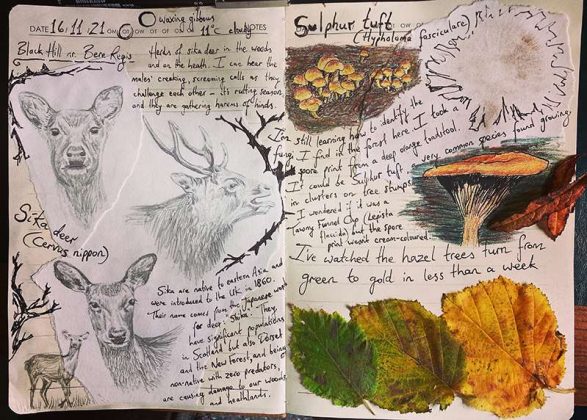 waxing gibbous
DATE 16/11/21 11°C cloudy NOTES
Black Hill nr. Bere Regis
Herds of sika deer in the woods
and on the heath. I can hear the
males' creaking, screaming calls as they
challenge each other - it's rutting season,
and they are gathering harems of hinds.
Sika deer
(Cervus nippon)
Sika are native to eastern Asia and
were introduced to the UK in 1860.
Their name comes from the Japanese word
for deer: 'Shika'. They
have significant populations
in Scotland but also Dorset
and the New Forest, and being
non-native with zero predators,
are causing damage to our woods
and heathlands.
Sulphur tuft
(Hypholoma fasciculare)
I'm still learning how to identify the
fungi I find in the forest here. I took a
spore print from a deep orange toadstool.
It could be Sulphur tuft, a very common species found growing
in clusters on tree stumps.
I wondered if it was a
Tawny Funnel Cap (Lepista
flaccida) but the spore
print wasn't cream-coloured.
I've watched the hazel trees turn from
green to gold in less than a week